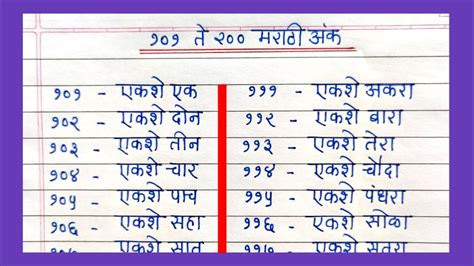 १०१ ते २०० मराठी अंक
१०१ - एकशे एक
१०२ - एकशे दोन
१०३ - एकशे तीन
१०४ - एकशे चार
१०५ - एकशे पाच
१०६ - एकशे सहा
१०७ - एकशे सात
१११ - एकशे अकरा
११२ - एकशे बारा
११३ - एकशे तेरा
११४ - एकशे चौदा
११५ - एकशे पंधरा
११६ - एकशे सोळा
११७ - एकशे सतरा